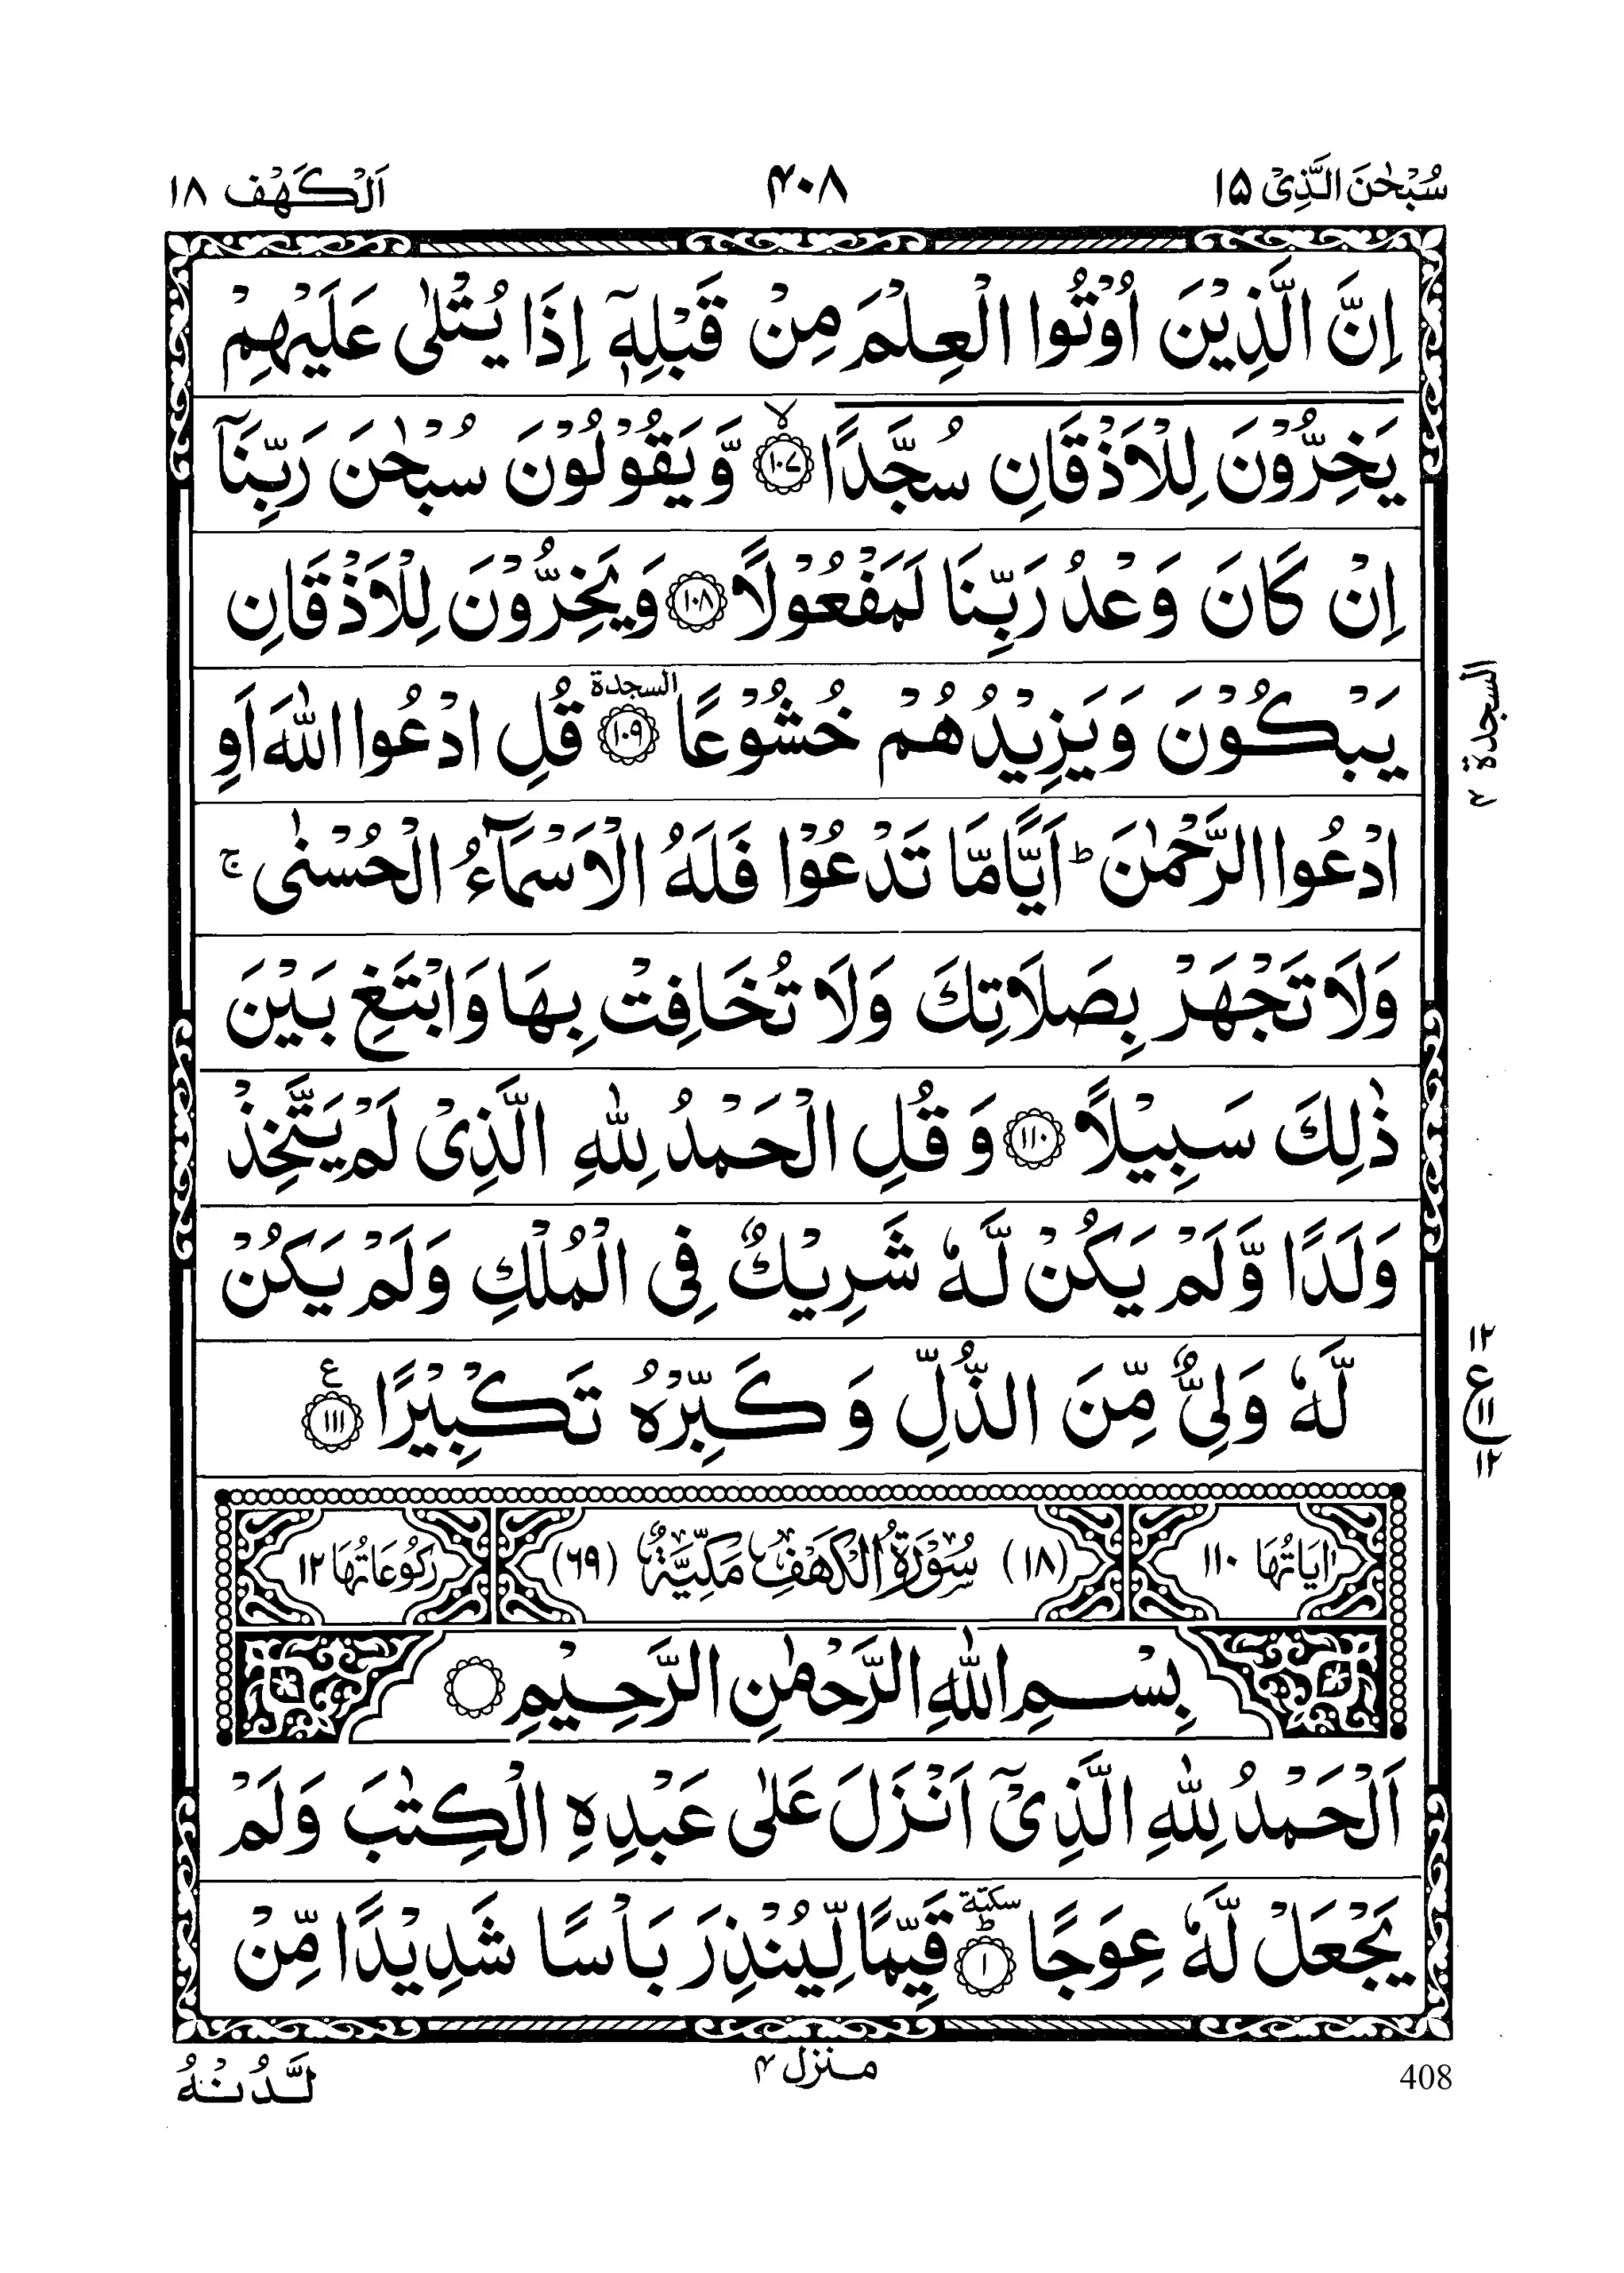 سُبْحٰنَ الَّذِیْ ١٥
٤٠٨
اَلْكَهْف ١٨
اِنَّ الَّذِیْنَ اُوْتُوا الْعِلْمَ مِنْ قَبْلِهٖۤ اِذَا یُتْلٰی عَلَیْهِمْ
یَخِرُّوْنَ لِلْاَذْقَانِ سُجَّدًا ۙ۝١٠٧ وَّیَقُوْلُوْنَ سُبْحٰنَ رَبِّنَاۤ
اِنْ كَانَ وَعْدُ رَبِّنَا لَمَفْعُوْلًا ۝١٠٨ وَیَخِرُّوْنَ لِلْاَذْقَانِ
یَبْكُوْنَ وَیَزِیْدُهُمْ خُشُوْعًا السجدة ۝١٠٩ قُلِ ادْعُوا اللّٰهَ اَوِ
السجدة ٤
ادْعُوا الرَّحْمٰنَ ؕ اَیًّا مَّا تَدْعُوْا فَلَهُ الْاَسْمَآءُ الْحُسْنٰی ۚ
وَلَا تَجْهَرْ بِصَلَاتِكَ وَلَا تُخَافِتْ بِهَا وَابْتَغِ بَیْنَ
ذٰلِكَ سَبِیْلًا ۝١١٠ وَ قُلِ الْحَمْدُ لِلّٰهِ الَّذِیْ لَمْ یَتَّخِذْ
وَلَدًا وَّلَمْ یَكُنْ لَّهٗ شَرِیْكٌ فِی الْمُلْكِ وَلَمْ یَكُنْ
لَّهٗ وَلِیٌّ مِّنَ الذُّلِّ وَ كَبِّرْهُ تَكْبِیْرًا ع ۝١١١
١٢ ع ١١ ١٢
اٰیَاتُهَا ١١٠
(١٨) سُوْرَةُ الْكَهْفِ مَكِّیَّةٌ (٦٩)
رُكُوْعَاتُهَا ١٢
بِسْمِ اللّٰهِ الرَّحْمٰنِ الرَّحِیْمِ ۝
اَلْحَمْدُ لِلّٰهِ الَّذِیْۤ اَنْزَلَ عَلٰی عَبْدِهِ الْكِتٰبَ وَلَمْ
یَجْعَلْ لَّهٗ عِوَجًا سكتة ؕ ۝١ قَیِّمًا لِّیُنْذِرَ بَاْسًا شَدِیْدًا مِّنْ
لَّدُنْهُ
منزل ٤
408